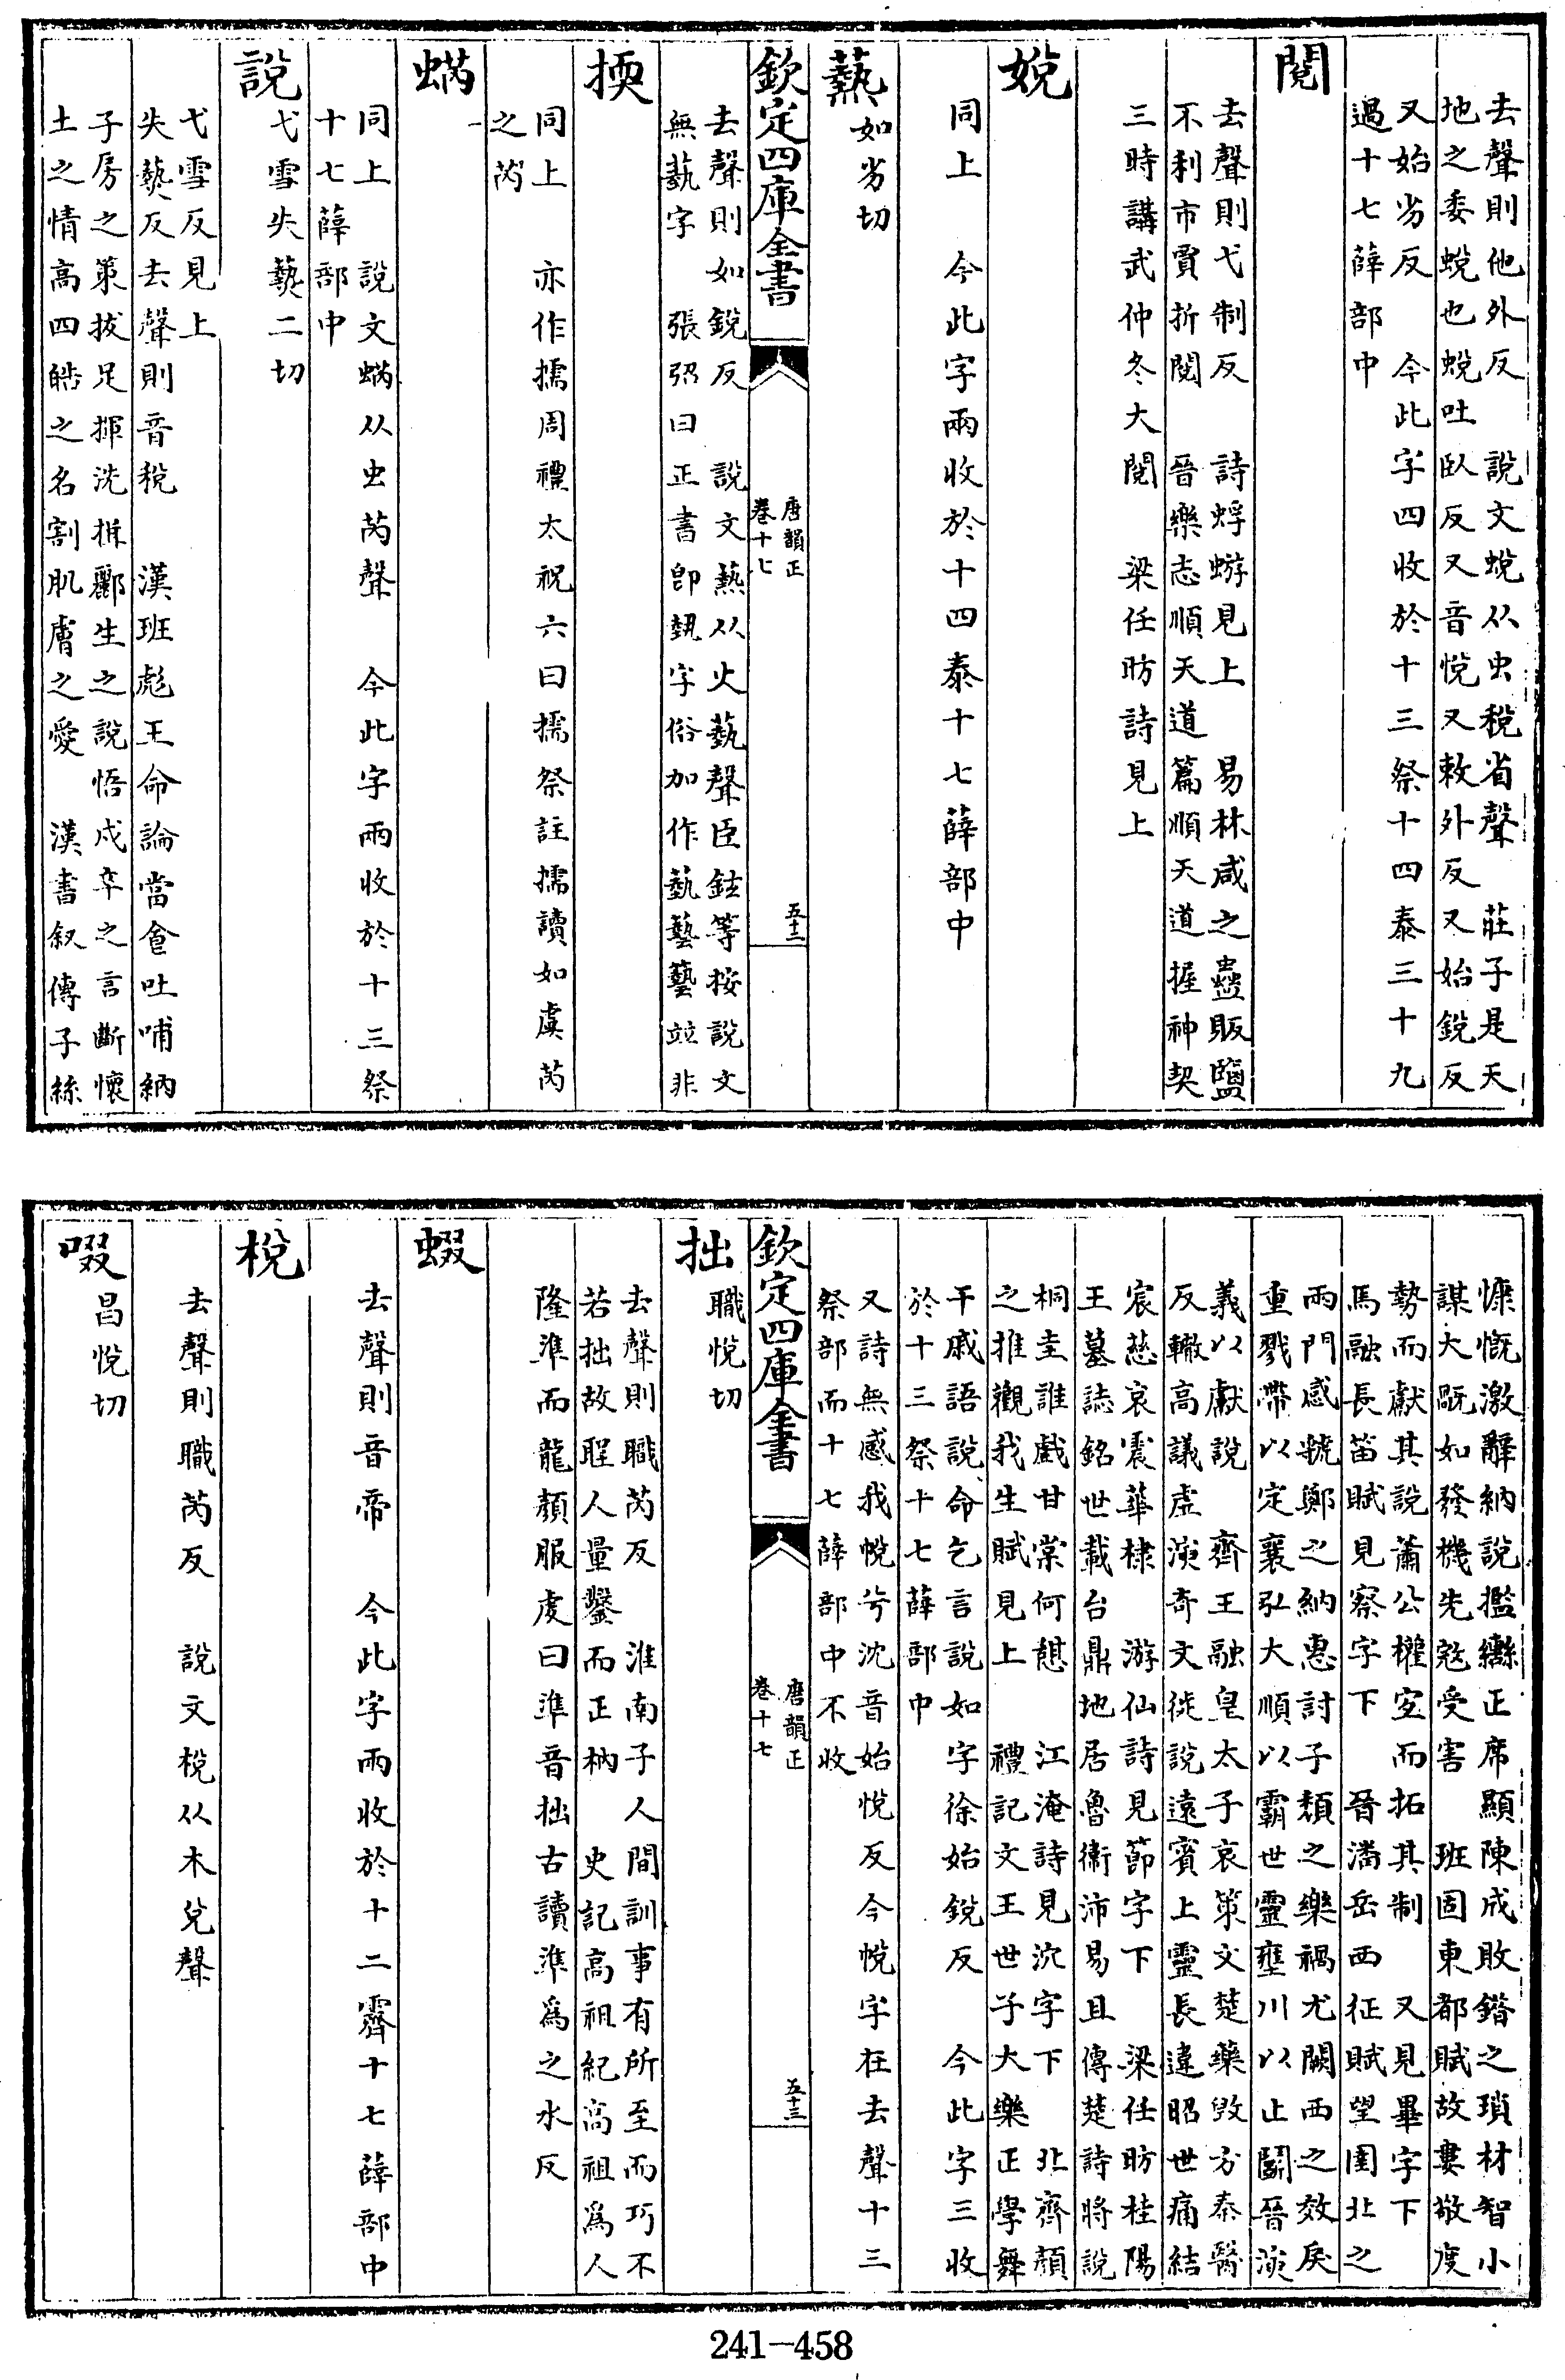 去聲則他外反　說文蛻从虫稅省聲　莊子是天
地之委蛻也蛻吐臥反又音悅又敕外反又始銳反
又始劣反　今此字四收於十三祭十四泰三十九
過十七薛部中
閱
去聲則弋制反　詩蜉蝣見上　易林咸之蠱販鹽
不利市賈折閱　晉樂志順天道篇順天道握神契
三時講武仲冬大閱　梁任昉詩見上
娧
同上　今此字兩收於十四泰十七薛部中
爇如劣切
欽定四庫全書
唐韻正
卷十七
五十二
去聲則如銳反　說文爇从火蓺聲臣鉉等按說文
無蓺字　張弨曰正書卽埶字俗加作蓺藝兿竝非
擩
同上　亦作擩周禮太祝六曰擩祭註擩讀如虞芮
之芮
蜹
同上　說文蜹从虫芮聲　今此字兩收於十三祭
十七薛部中
說弋雪失爇二切
弋雪反見上
失爇反去聲則音稅　漢班彪王命論當食吐哺納
子房之策拔足揮洗揖酈生之說悟戍卒之言斷懷
土之情高四皓之名割肌膚之愛　漢書叙傳子絲
慷慨激辭納說攬轡正席顯陳成敗錯之瑣材智小
謀大旤如發機先寇受害　班固東都賦故婁敬度
勢而獻其說蕭公權宜而拓其制　又見畢字下
馬融長笛賦見察字下　晉潘岳西征賦望圉北之
兩門感虢鄭之納惠討子頹之樂禍尤闕西之效戾
重戮帶以定襄弘大順以霸世靈壅川以止鬭晉演
義以獻說　齊王融皇太子哀策文楚藥效方秦醫
反轍高議虛演奇文徙說遠賓上靈長違昭世痛結
宸慈哀震華棣　游仙詩見節字下　梁任昉桂陽
王墓誌銘世載台鼎地居魯衞沛易且傳楚詩將說
桐圭誰戲甘棠何憩　江淹詩見沉字下　北齊顏
之推觀我生賦見上　禮記文王世子大樂正學舞
干戚語說命乞言說如字徐始銳反　今此字三收
於十三祭十七薛部中
又詩無感我帨兮沈音始悅反今帨字在去聲十三
祭部而十七薛部中不收
欽定四庫全書
唐韻正
卷十七
五十三
拙職悅切
去聲則職芮反　淮南子人間訓事有所至而巧不
若拙故聖人量鑿而正枘　史記高祖紀高祖爲人
隆準而龍顏服虔曰準音拙古讀準爲之水反
蝃
去聲則音帝　今此字兩收於十二霽十七薛部中
梲
去聲則職芮反　說文梲从木兌聲
啜昌悅切
241-458